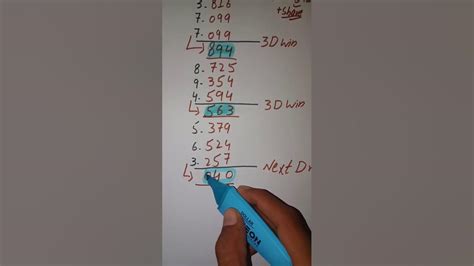 3. 816
+share
7. 099
7. 099
894 3D win
8. 725
9. 354
4. 594
563 3D win
5. 379
6. 524
3. 257
40 Next D